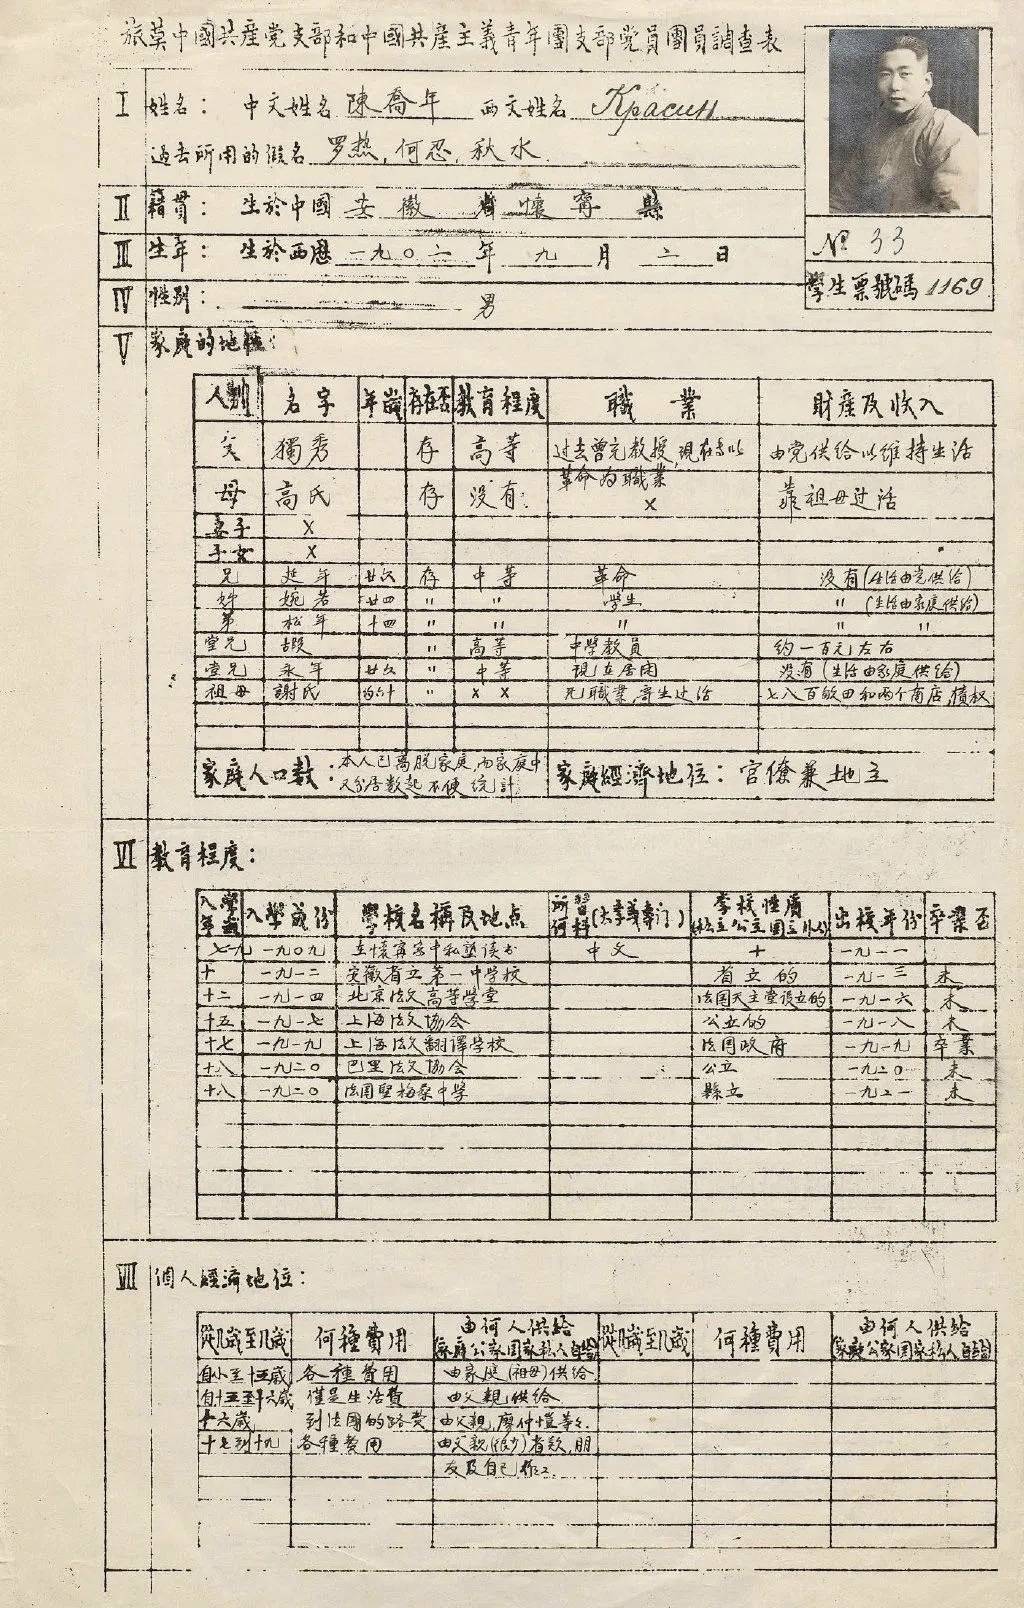 旅莫中國共産党支部和中國共産主義青年團支部党員團員調查表
I 姓名： 中文姓名 陳喬年 西文姓名 Красин
過去所用的假名 罗热, 何忍, 秋水.
II 籍貫： 生於中國 安徽 省 懷寧 縣
III 生年： 生於西歷 一九〇二 年 九 月 二 日
№ 33
學生票號碼 1169
IV 性别： 男
V 家庭的地位：
人别 名字 年歲 存在否 教育程度 職業 財産及收入
父 獨秀 存 高等 过去曾充教授, 現在専以革命为職業 由党供给以维持生活
母 高氏 存 没有. × 靠祖母过活
妻子 ×
子女 ×
兄 延年 廿六 存 中等 革命 没有(生活由党供给)
姊 婉若 廿四 〃 〃 学生 〃 (生活由家庭供给)
弟 松年 十四 〃 〃 〃 〃 〃
堂兄 遐 〃 高等 中學教員 约一百元左右
堂兄 永年 廿六 〃 中等 現在居閑 没有(生活由家庭供给)
祖母 謝氏 约六十 〃 × × 无職業, 寄生过活 七八百畝田和两个商店, 債权
家庭人口数： 本人已离脱家庭, 而家庭中又分居数起不便统計
家庭經濟地位： 官僚兼地主
VI 教育程度：
入學年歲 入學歲份 學校名稱及地点 所習何科(大學義專门) 學校性質(私立公立国立) 出校年份 卒業否
七—九 一九〇九 在懷寧家中私塾读书 中文 + 一九一一
十 一九一二 安徽省立第一中学校 省立的 一九一三 未
十二 一九一四 北京法文高等学堂 法国天主堂设立的 一九一六 未
十五 一九一七 上海法文協会 公立的 一九一八 未
十七 一九一九 上海法文翻譯学校 法国政府 一九一九 卒業
十八 一九二〇 巴里法文協会 公立 一九二〇 未
十八 一九二〇 法国聖梅桑中学 縣立 一九二一 未
VII 個人經濟地位：
從几歲至几歲 何種費用 由何人供給(家庭公家国家私人自給) 從几歲至几歲 何種費用 由何人供給(家庭公家国家私人自給)
自小至十五歲 各種費用 由家庭(祖母)供给
自十五至十六歲 僅是生活費 由父親供给
十六歲 到法國的路费 由父親, 廖仲愷等々.
十七到十九 各種費用 由父親(很少)者数, 朋友及自己作工.